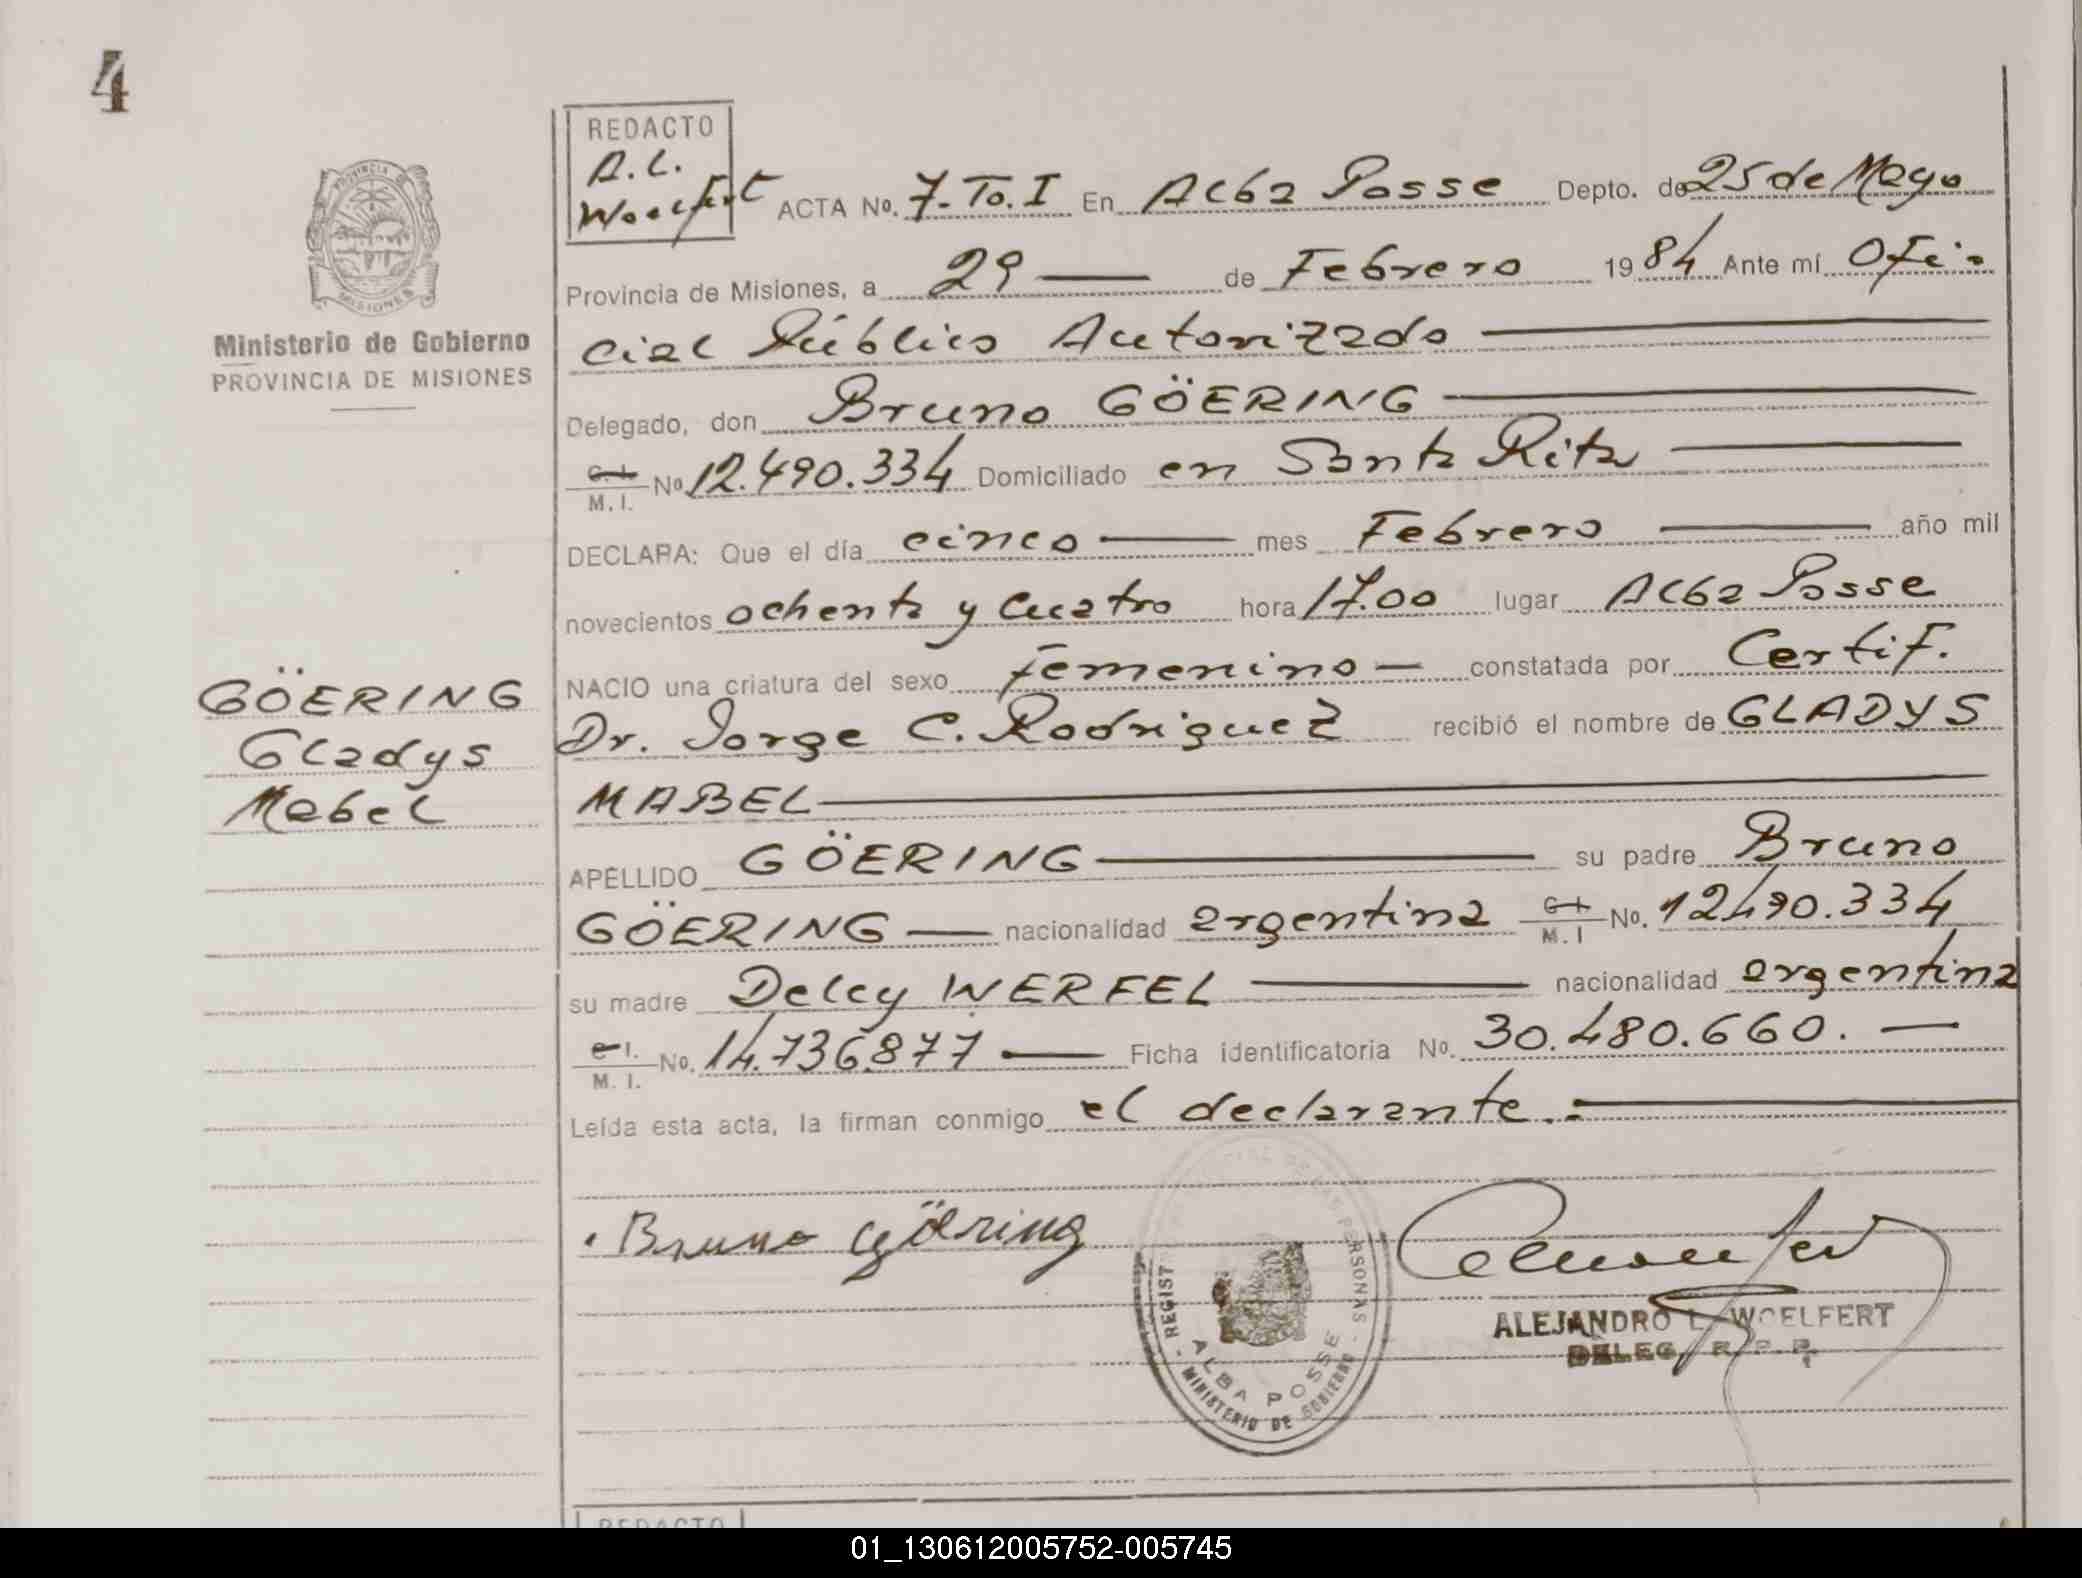 4
REDACTO
A. L.
Woelfert
ACTA No. 7-To. I En Alba Posse Depto. de 25 de Mayo
PROVINCIA DE MISIONES
Ministerio de Gobierno
PROVINCIA DE MISIONES
Provincia de Misiones, a 29 — de Febrero 1984 Ante mí Ofi-
cial Público Autorizado —
Delegado, don Bruno GÖERING —
C. I.
M. I. No 12.490.334 Domiciliado en Santa Rita —
DECLARA: Que el día cinco — mes Febrero — año mil
novecientos ochenta y cuatro hora 17.00 lugar Alba Posse
NACIO una criatura del sexo femenino — constatada por Certif.
Dr. Jorge C. Rodriguez recibió el nombre de GLADYS
MABEL —
GÖERING
Gladys
Mabel
APELLIDO GÖERING — su padre Bruno
GÖERING — nacionalidad argentina C. I.
M. I No. 12490.334
su madre Delcy WERFEL — nacionalidad argentina
C. I.
M. I. No. 14.736.877 — Ficha identificatoria No. 30.480.660. —
Leída esta acta, la firman conmigo el declarante.-
Bruno Göering
REGIST PROVINCIAL DE LAS PERSONAS
ALBA POSSE
- MINISTERIO DE GOBIERNO -
ALEJANDRO L. WOELFERT
DELEG. R. P. P.
REDACTO
01_130612005752-005745